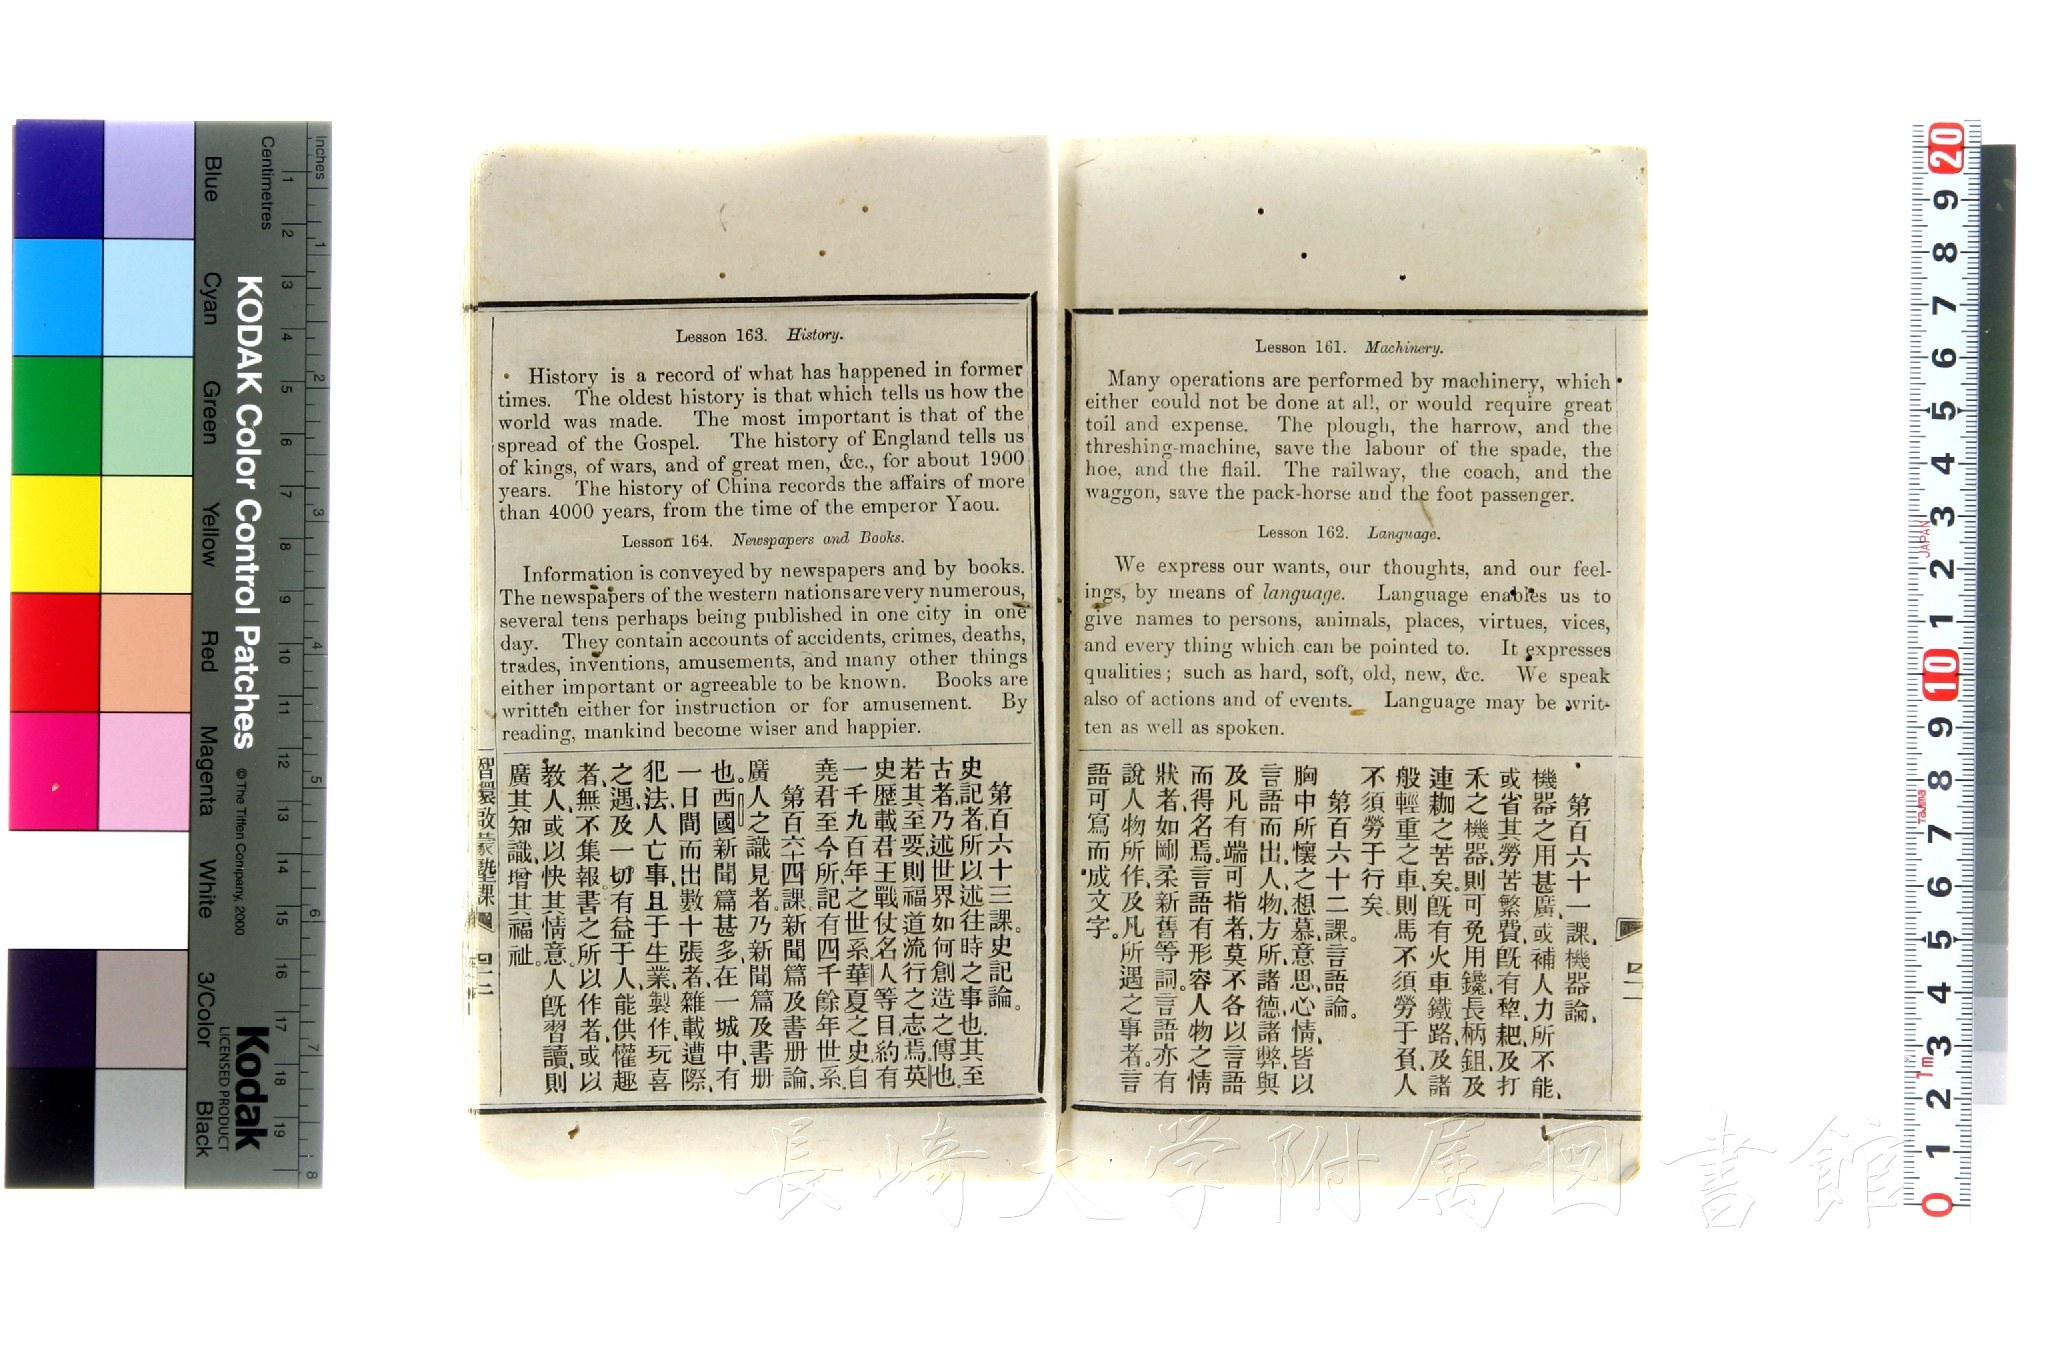 Lesson 161. Machinery.
Many operations are performed by machinery, which
either could not be done at all, or would require great
toil and expense. The plough, the harrow, and the
threshing-machine, save the labour of the spade, the
hoe, and the flail. The railway, the coach, and the
waggon, save the pack-horse and the foot passenger.
Lesson 162. Language.
We express our wants, our thoughts, and our feel-
ings, by means of language. Language enables us to
give names to persons, animals, places, virtues, vices,
and every thing which can be pointed to. It expresses
qualities; such as hard, soft, old, new, &c. We speak
also of actions and of events. Language may be writ-
ten as well as spoken.
第百六十一課、機器論、
機器之用甚廣、或補人力所不能、
或省其勞苦繁費、既有犂耙、及打
禾之機器、則可免用鑱、長柄鉏、及
連耞之苦矣。既有火車鐵路、及諸
般輕重之車、則馬不須勞于負、人
不須勞于行矣
第百六十二課。言語論。
胸中所懷之想慕、意思、心情、皆以
言語而出、人物、方所、諸德、諸弊、與
及凡有端可指者、莫不各以言語
而得名焉。言語有形容人物之情
狀者、如剛柔新舊等詞。言語亦有
說人物所作、及凡所遇之事者。言
語可寫而成文字。
Lesson 163. History.
History is a record of what has happened in former
times. The oldest history is that which tells us how the
world was made. The most important is that of the
spread of the Gospel. The history of England tells us
of kings, of wars, and of great men, &c., for about 1900
years. The history of China records the affairs of more
than 4000 years, from the time of the emperor Yaou.
Lesson 164. Newspapers and Books.
Information is conveyed by newspapers and by books.
The newspapers of the western nations are very numerous,
several tens perhaps being published in one city in one
day. They contain accounts of accidents, crimes, deaths,
trades, inventions, amusements, and many other things
either important or agreeable to be known. Books are
written either for instruction or for amusement. By
reading, mankind become wiser and happier.
第百六十三課。史記論。
史記者、所以述往時之事也。其至
古者、乃述世界如何創造之傳也。
若其至要、則福道流行之志焉。英
史歷載君王戰仗名人等目、約有
一千九百年之世系。華夏之史、自
堯君至今、所記有四千餘年世系
第百六十四課。新聞篇及書册論。
廣人之識見者、乃新聞篇及書册
也。西國新聞篇甚多、在一城中、有
一日間而出數十張者、雜載遭際、
犯法、人亡事、且于生業、製作、玩喜
之遇、及一切有益于人、能供懽趣
者、無不集報。書之所以作者、或以
教人、或以快其情意。人既習讀、則
廣其知識、增其福祉。
智環啟蒙塾課
KODAK Color Control Patches
© The Tiffen Company, 2000
Kodak
LICENSED PRODUCT
Inches
Centimetres
Blue
Cyan
Green
Yellow
Red
Magenta
White
3/Color
Black
長崎大学附属図書館